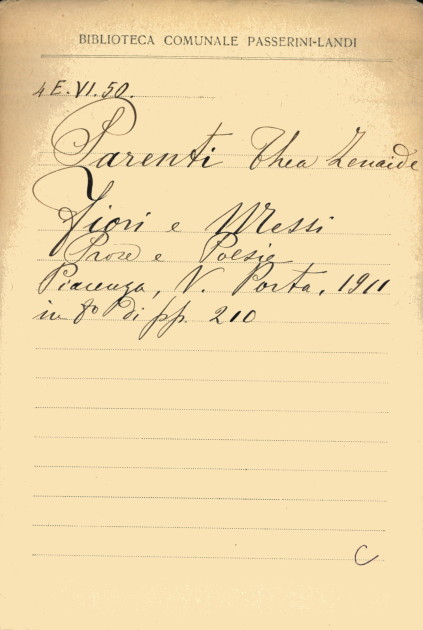 BIBLIOTECA COMUNALE PASSERINI-LANDI
4 E. VI. 50.
Parenti Thea Zenaide
Fiori e Messi
Prose e Poesie
Piacenza, V. Porta, 1911
in 8º di pp. 210
C